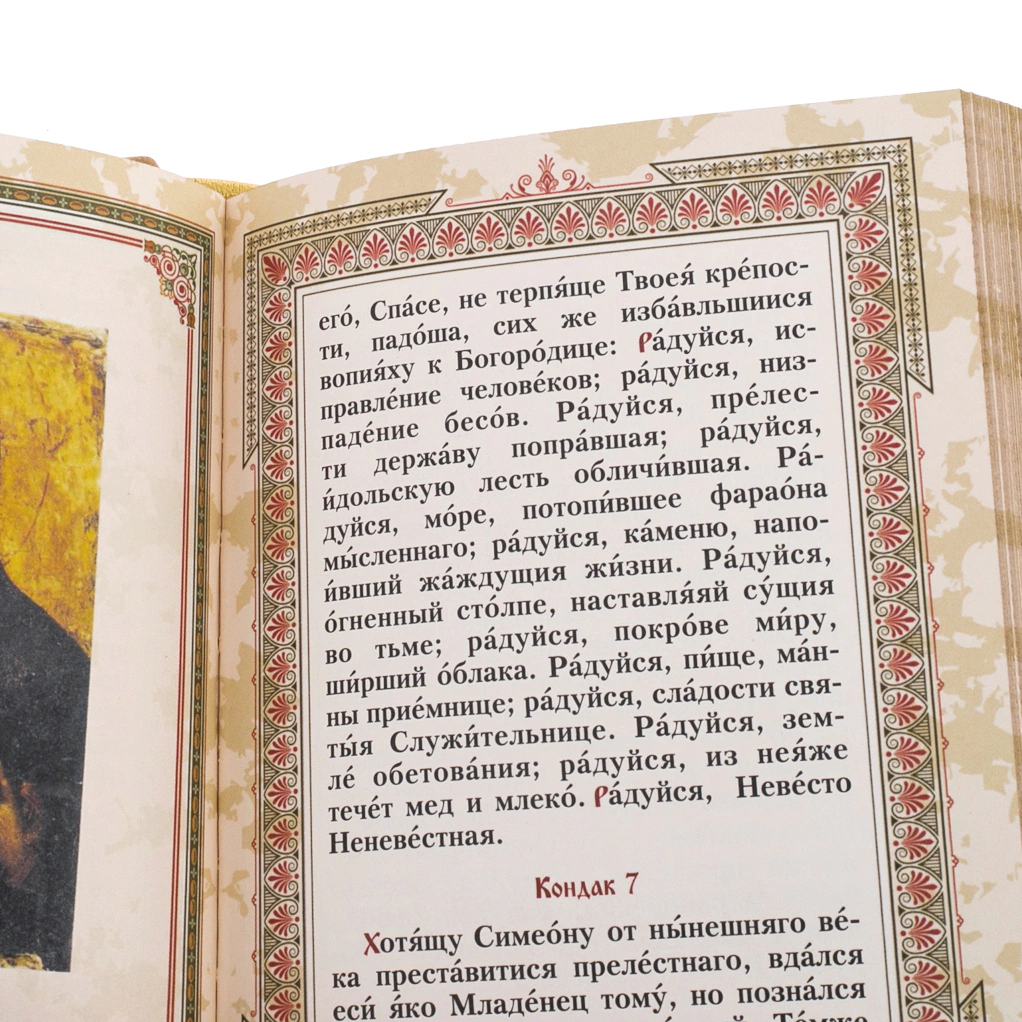 его́, Спа́се, не терпя́ще Твоея́ кре́пос-
ти, падо́ша, сих же изба́вльшиися
вопия́ху к Богоро́дице: Ра́дуйся, ис-
правле́ние челове́ков; ра́дуйся, низ-
паде́ние бесо́в. Ра́дуйся, пре́лес-
ти держа́ву попра́вшая; ра́дуйся,
и́дольскую лесть обличи́вшая. Ра́-
дуйся, мо́ре, потопи́вшее фарао́на
мы́сленнаго; ра́дуйся, ка́меню, напо-
и́вший жа́ждущия жи́зни. Ра́дуйся,
о́гненный сто́лпе, наставля́яй су́щия
во тьме; ра́дуйся, покро́ве ми́ру,
ши́рший о́блака. Ра́дуйся, пи́ще, ма́н-
ны прие́мнице; ра́дуйся, сла́дости свя-
ты́я Служи́тельнице. Ра́дуйся, зем-
ле́ обетова́ния; ра́дуйся, из нея́же
тече́т мед и млеко́. Ра́дуйся, Неве́сто
Неневе́стная.
Кондак 7
Хотя́щу Симео́ну от ны́нешняго ве́-
ка преста́витися преле́стнаго, вда́лся
еси́ я́ко Младе́нец тому́, но позна́лся